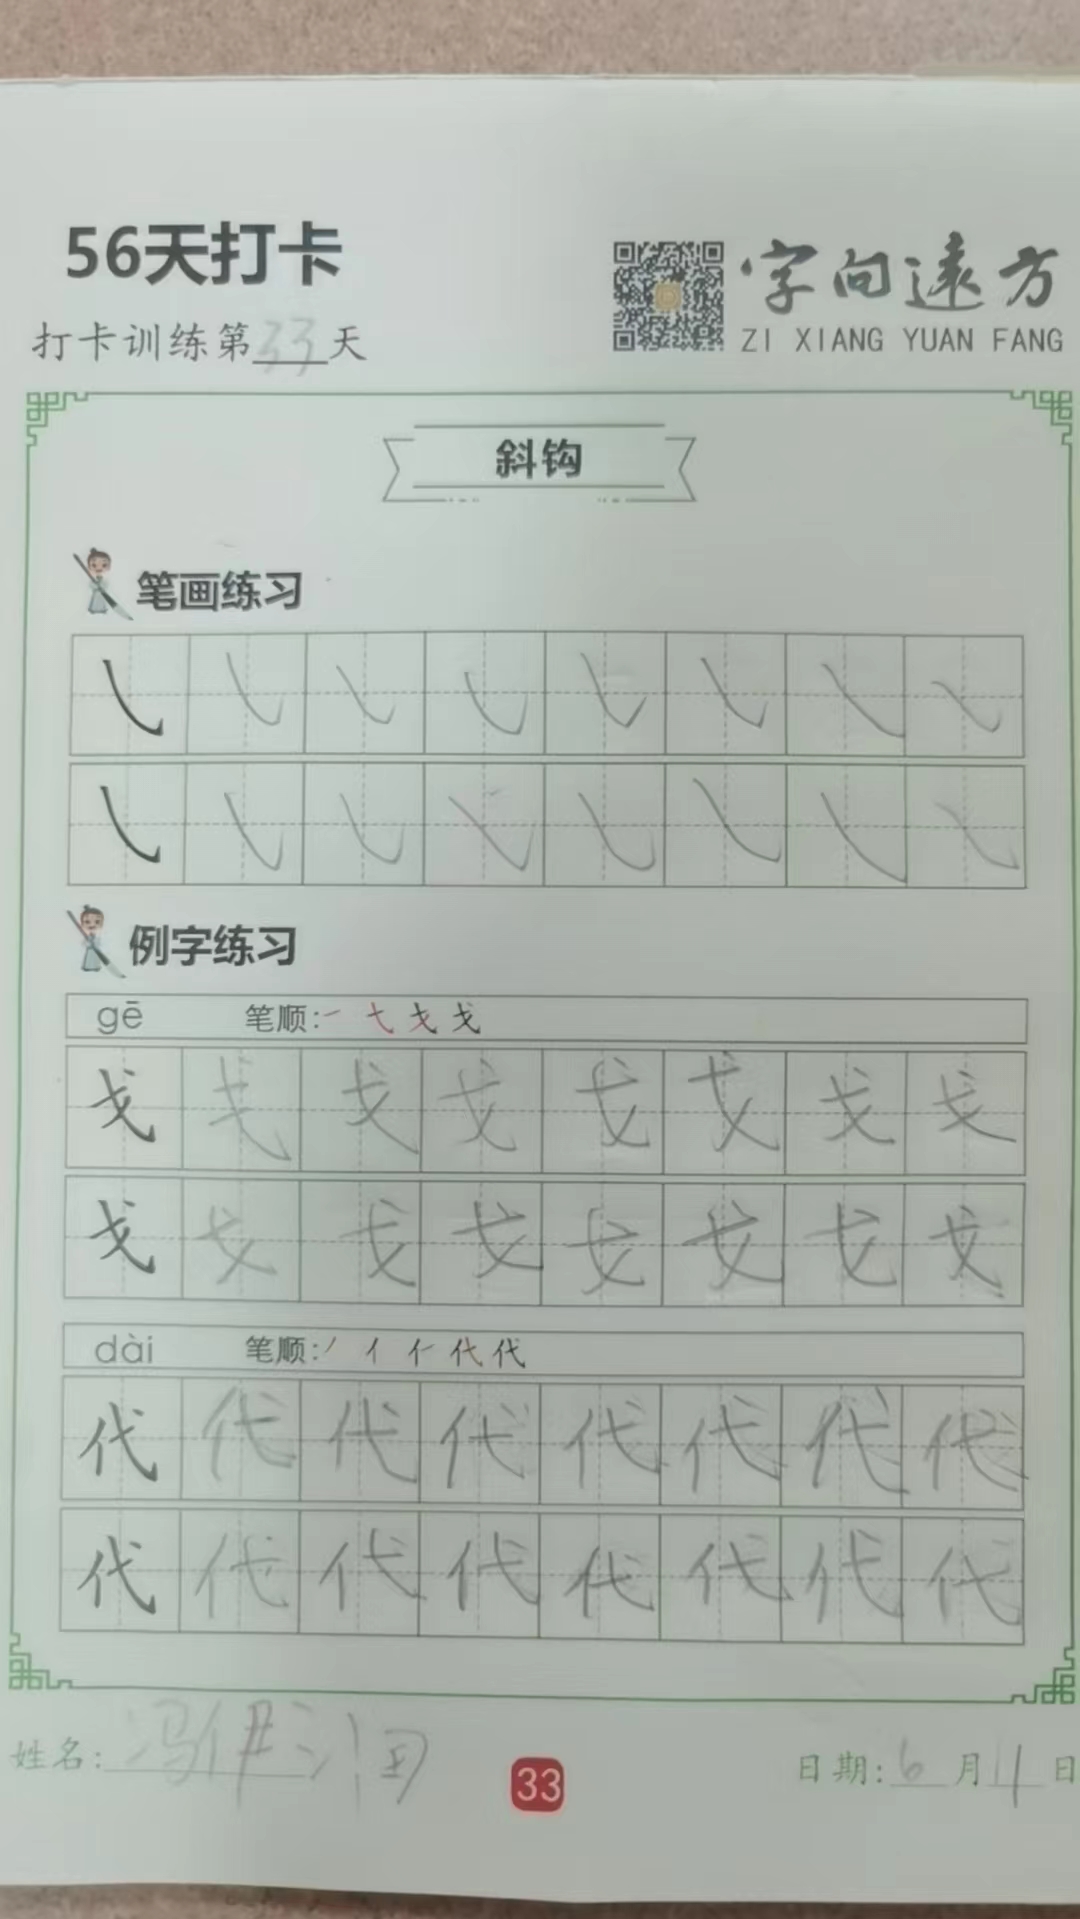 56天打卡
字向远方
打卡训练第33天
ZI XIANG YUAN FANG
斜钩
笔画练习
㇂ ㇂ ㇂ ㇂ ㇂ ㇂ ㇂ ㇂
㇂ ㇂ ㇂ ㇂ ㇂ ㇂ ㇂ ㇂
例字练习
gē 笔顺:一 七 戈 戈
戈 戈 戈 戈 戈 戈 戈 戈
戈 戈 戈 戈 戈 戈 戈 戈
dài 笔顺:丿 亻 仁 代 代
代 代 代 代 代 代 代 代
代 代 代 代 代 代 代 代
姓名:冯伊
33
日期:6月11日